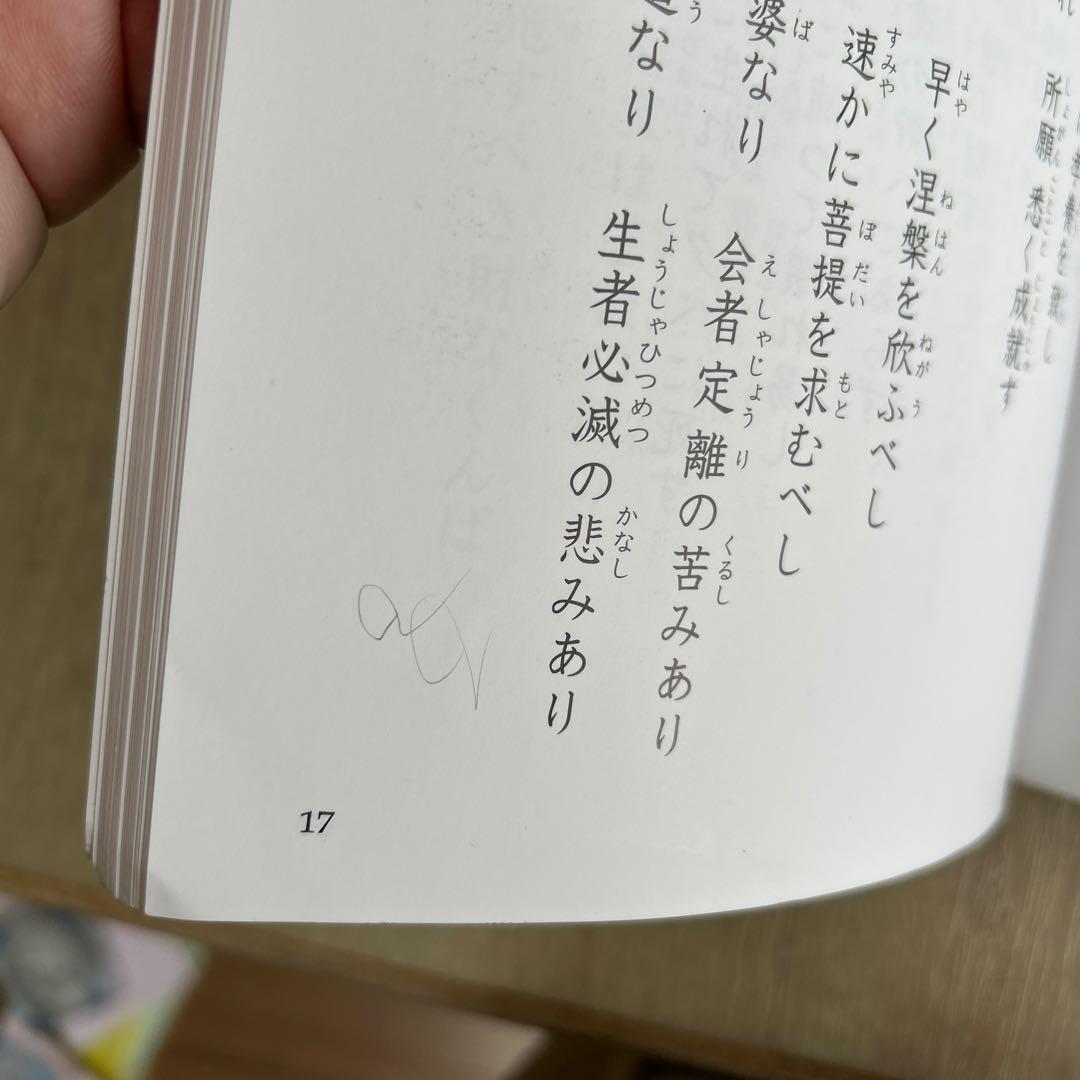 所願悉く成就す
早く涅槃を欣ふべし
速かに菩提を求むべし
婆なり 会者定離の苦みあり
なり 生者必滅の悲みあり
17